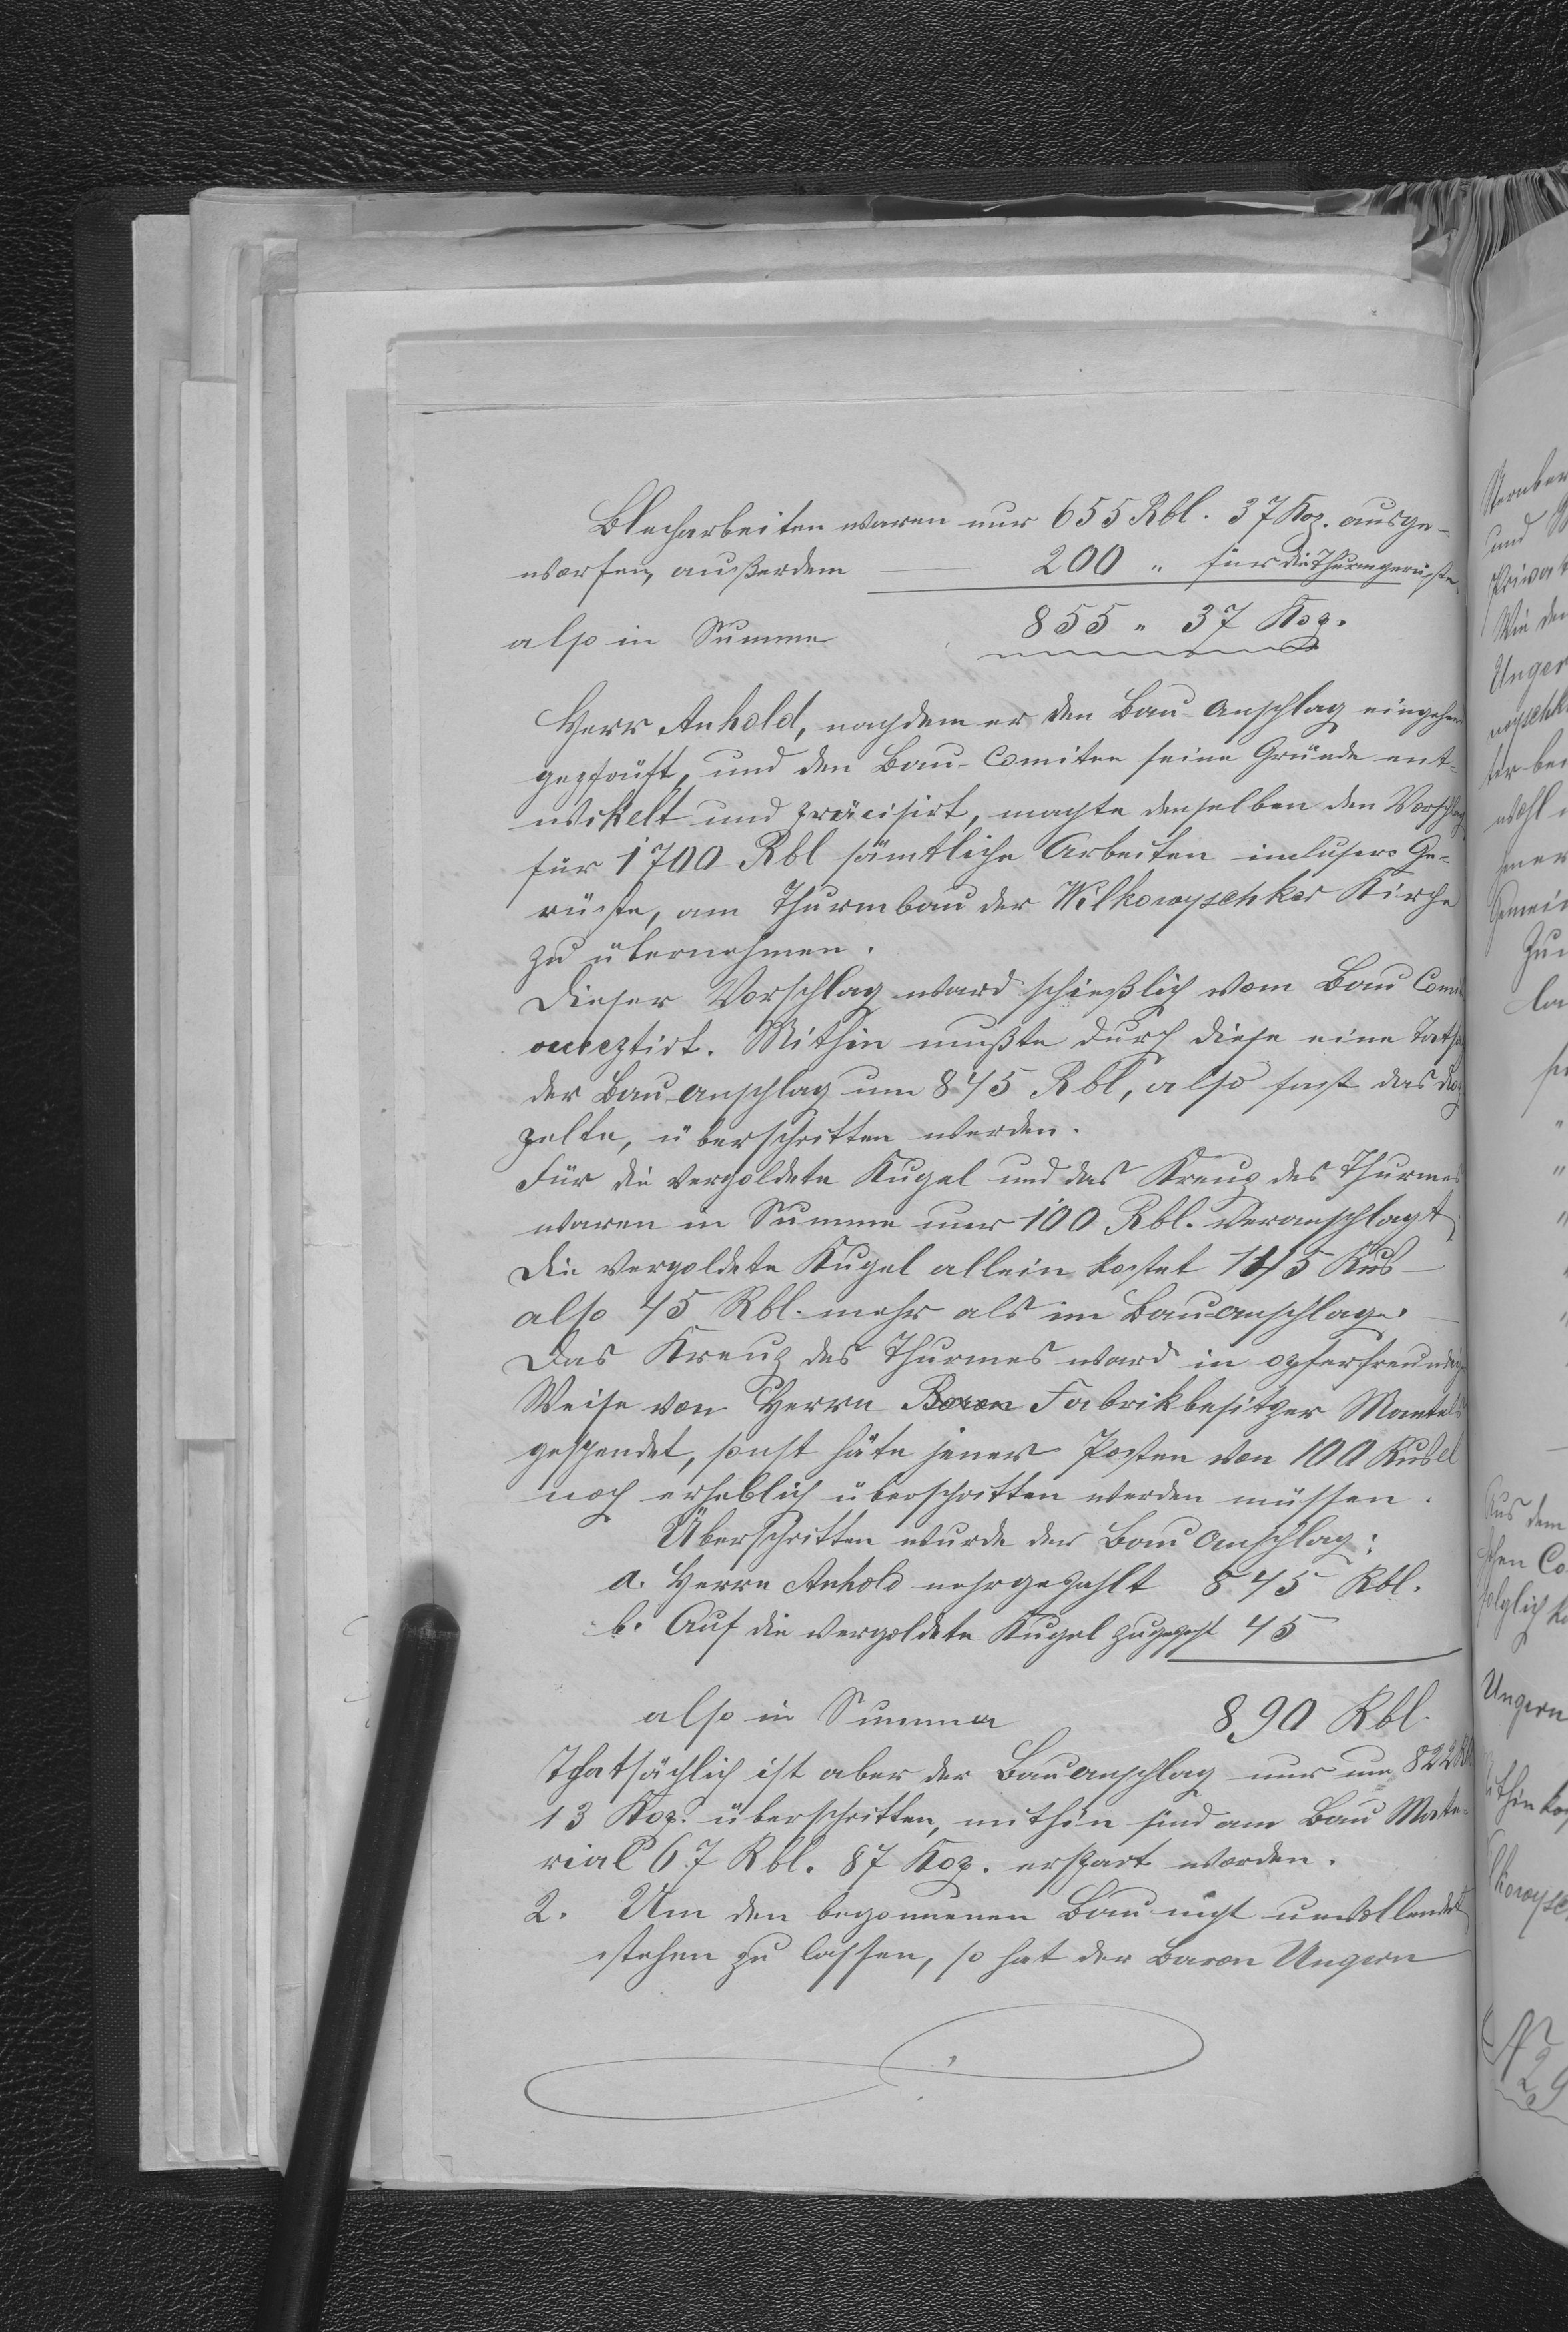 Blecharbeiten waren nur 655 Rbl. 37 Kop. ausge-
worfen, außerdem — 200 " für die Thurmgerüste,
also in Summa 855 " 37 Kop.
Herr Anhold, nachdem er den Bau-Anschlag eingehend
geprüft, und den Bau-Comitee seine Gründe ent-
wikelt und präcisirt, machte denselben den Vorschlag
für 1700 Rbl sämtliche Arbeiten inclusive Ge-
rüste, am Thurmbau der Wilkowyschker Kirche
zu übernehmen.
Dieser Vorschlag ward schießlich vom Bau Comi
acceptirt. Mithin mußte durch diese eine Tatsa
der Bauanschlag um 845 Rbl, also fast das Dop
pelte, überschritten werden.
Für die vergoldete Kugel und das Kreuz des Thurmes
waren in Summa nur 100 Rbl. veranschlagt,
die vergoldete Kugel allein kostet 145 Rub —
also 45 Rbl. mehr als im Bauanschlage. —
Das Kreuz des Thurmes ward in opferfreudig
Weise von Herrn Baron Fabrikbesitzer Mantel
gespendet, sonst häte jener Posten von 100 Rubel
noch erheblich überschritten werden müssen.
Überschritten wurde der Bauanschlag:
a. Herrn Anhold mehrgezahlt 845 Rbl.
b. Auf die vergoldete Kugel 45
also in Summa 890 Rbl.
Thatsächlich ist aber der Bauanschlag nur um 822 Rbl
13 Kop. überschritten, mithin sind am Bau Mate-
rial 67 Rbl. 87 Kop. erspart worden.
2. Um den begonnenen Bau nicht unvollendet
stehen zu lassen, so hat der Baron Ungern